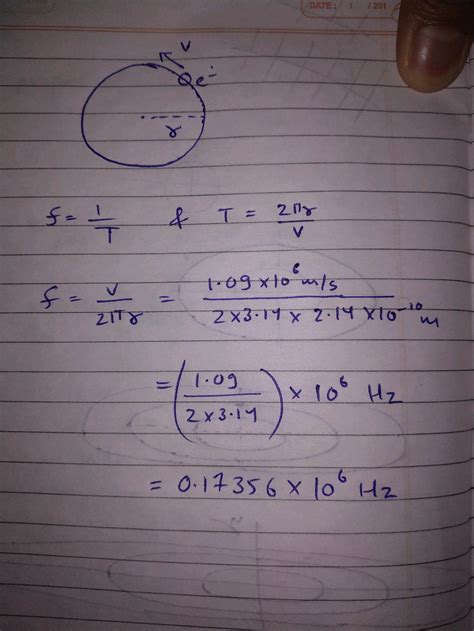 DATE: / / 201
v
e⁻
r
f = 1/T & T = 2πr/v
f = v/2πr = 1.09 × 10⁶ m/s / 2 × 3.14 × 2.14 × 10⁻¹⁰ m
= (1.09 / 2 × 3.14) × 10⁶ Hz
= 0.17356 × 10⁶ Hz